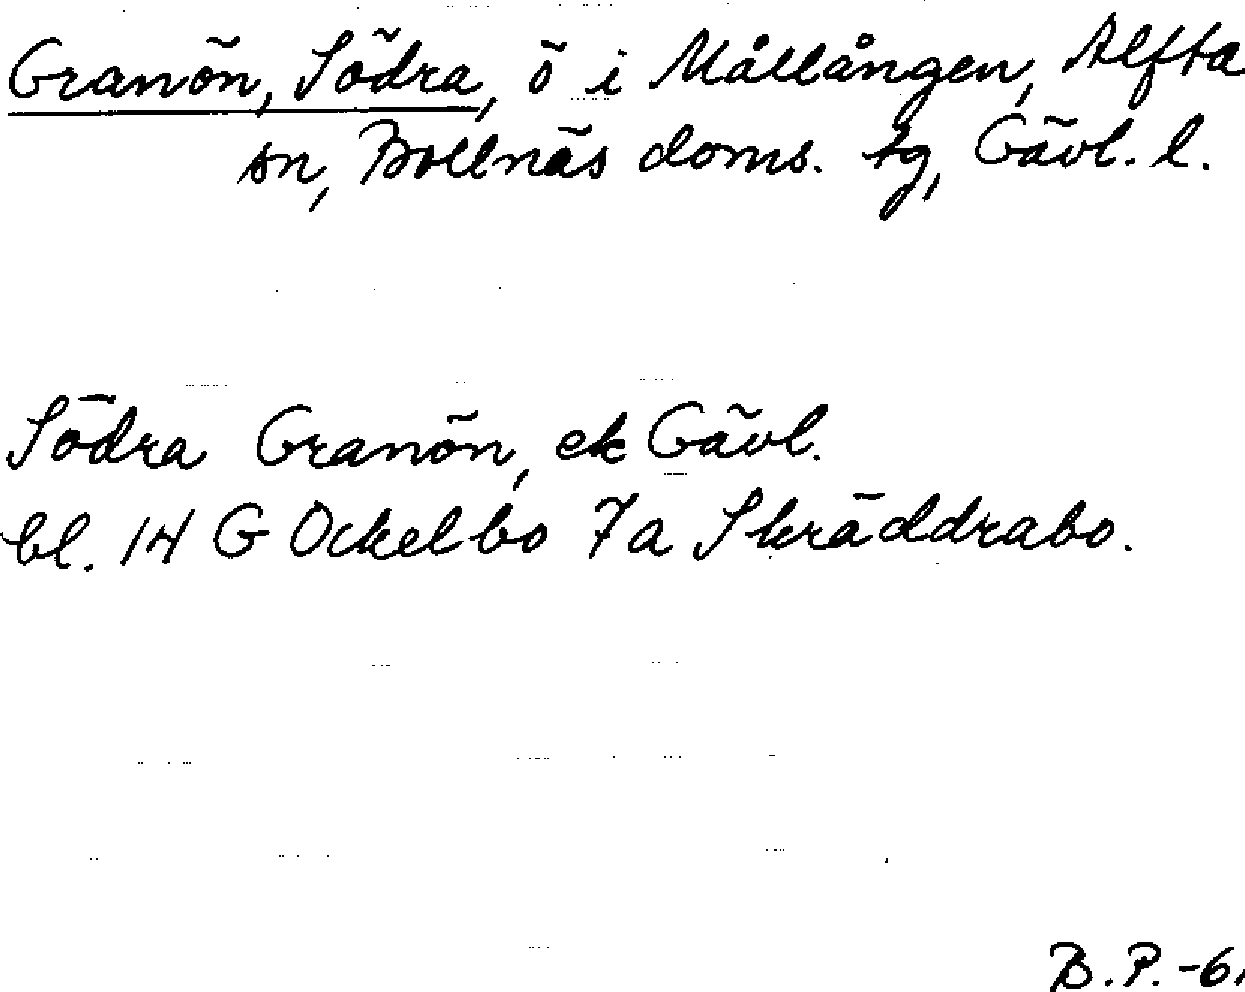 Granön, Södra, ö i Mållången, Alfta
sn, Bollnäs doms. tg, Gävl. l.
Södra Granön, ek Gävl.
bl. 14 G Ockelbo 7a Skräddrabo.
B.P. -6